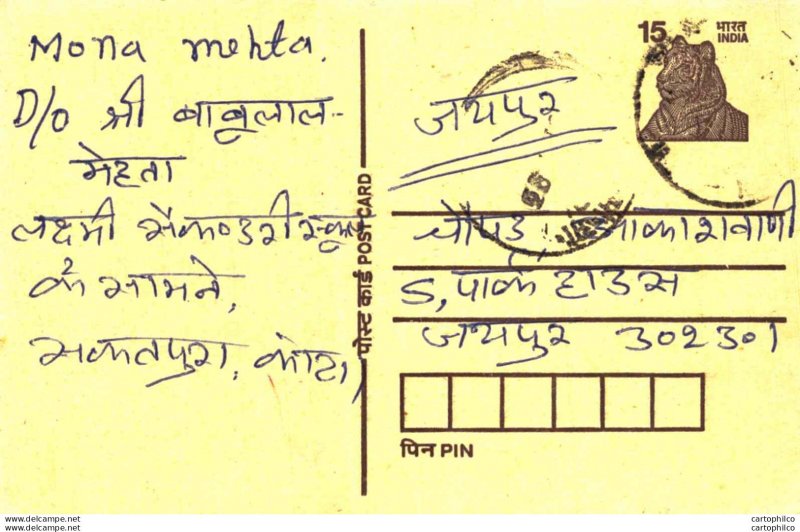 Mona mehta.
D/o श्री बाबूलाल-
मेहता
लक्ष्मी सैकण्डरी स्कूल
के सामने,
सकतपुरा, कोटा,
पोस्ट कार्ड POST CARD
15 भारत
INDIA
जयपुर
चौपड, आकाशवाणी
5, पार्क हाउस
जयपुर 302301
पिन PIN
cartophilco
cartophilco